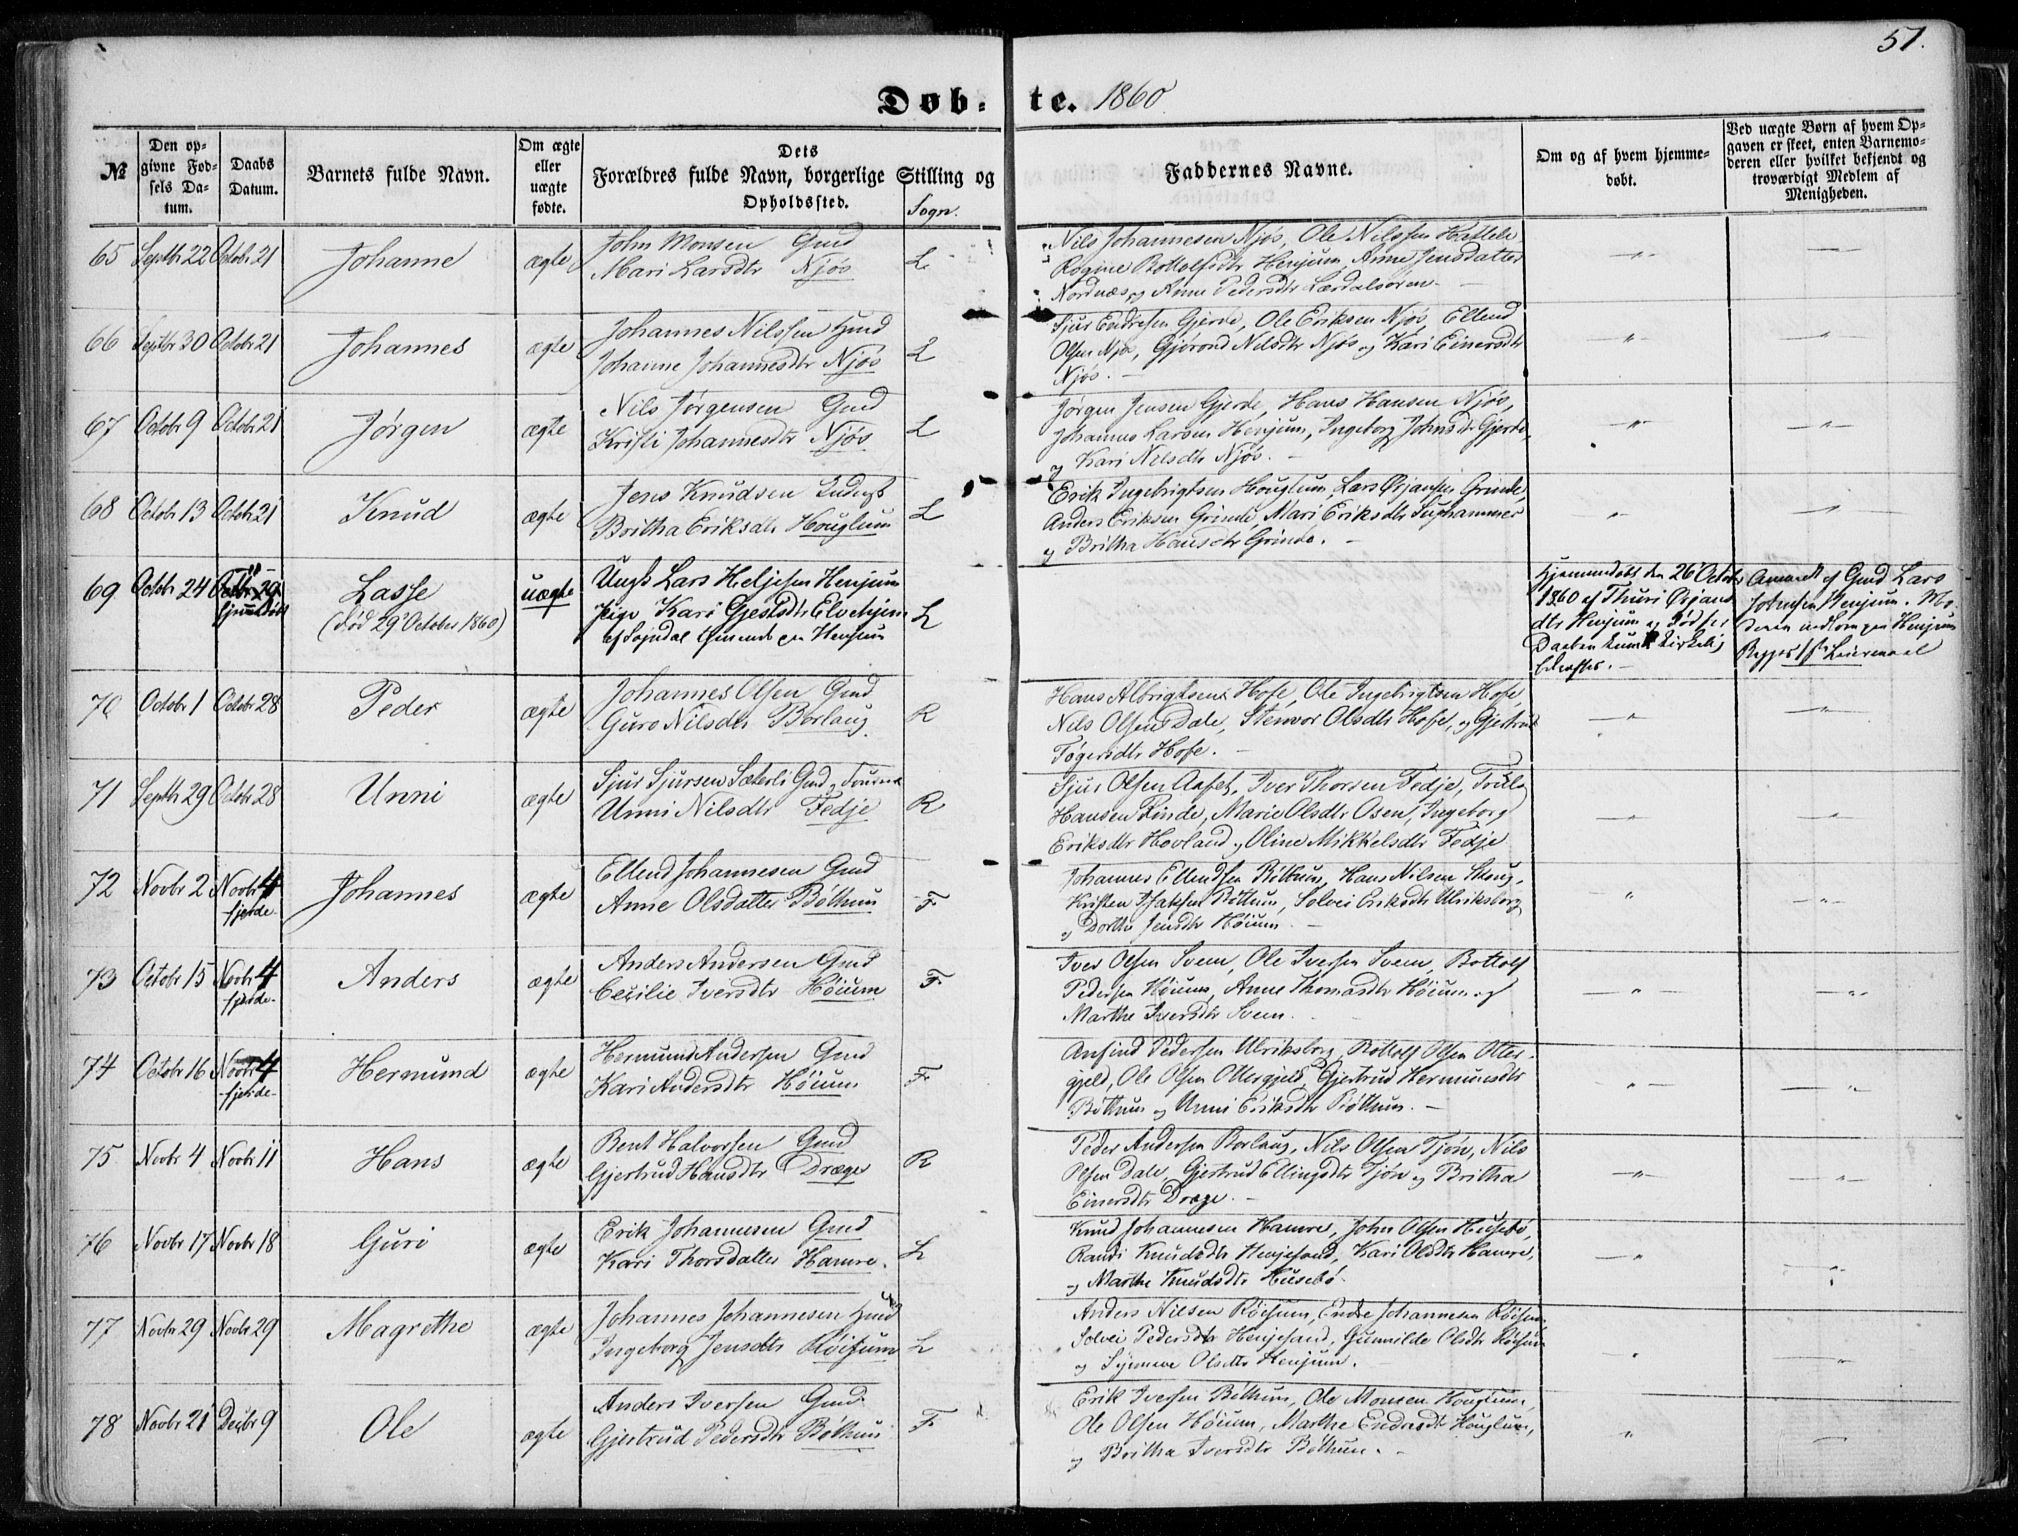 57.
Døb-te. 1860
№
Den op-
givne Fød-
sels Da-
tum.
Daabs
Datum.
Barnets fulde Navn.
Om ægte
eller
uægte
fødte.
Dets
Forældres fulde Navn, borgerlige Stilling og
Opholdssted.
Sogn.
Faddernes Navne.
Om og af hvem hjemme-
døbt.
Ved uægte Børn af hvem Op-
gaven er skeet, enten Barnemo-
deren eller hvilket bekjendt og
troværdigt Medlem af
Menigheden.
65 Septbr 22 Octobr 21 Johanne ægte
John Monsen Gmd
Mari Larsdtr Njøs L
Nils Johannesen Njøs, Ole Nilssen Hattele
Rogine Bottolfsdtr Henjum Anne Jensdatter
Nordnæs og Anne Pedersdtr Lærdalsøren
66 Septbr 30 Octobr 21 Johannes ægte
Johannes Nilssen Hmd
Johanne Johannesdtr Njøs L
Sjur Endresen Gjerde, Ole Eriksen Njøs, Ellend
Olsen Njøs, Gjørond Nilsdtr Njøs og Kari Einersdtr
Njøs.
67 Octobr 9 Octobr 21 Jørgen ægte
Nils Jørgensen Gmd
Kristi Johannesdtr Njøs L
Jørgen Jensen Gjerde, Hans Hansen Njøs,
Johannes Larsen Henjum, Ingeborg Johnsdtr Gjerde,
og Kari Nilsdtr Njøs.
68 Octobr 13 Octobr 21 Knud ægte
Jens Knudsen
Britha Eriksdtr Houglum L
Erik Ingebrigtsen Houglum, Lars Ørjansen Grinde,
Anders Eriksen Grinde, Mari Eriksdtr Suphammer
og Britha Hansdtr Grinde.
69 Octobr 24 Octbr 29 Lasse uægte
hjemmedøbt
(død 29 October 1860)
Ungk Lars Heljesen Henjum
Pige Kari Gjestsdtr Elvehjem
af Sogndal paa Henjum L
Hjemmedøbt den 26 Octobr
1860 af Thuri Ørjans
dtr Henjum og død før
Daaben kunde kirkelig
bekræftes.
Anmeldt af Gmd Lars
Johnsen Henjum. Mo-
deren indlem paa Henjum
Begges 1ste Leiermaal
70 Octobr 1 Octobr 28 Peder ægte
Johannes Olsen Gmd
Guro Nilsdtr Borlaug R
Hans Albrigtsen Hofe, Ole Ingebrigtsen Hofe,
Nils Olsen Dale, Stenvor Olsdtr Hofe, og Gjertrud
Tøgersdtr Hofe.
71 Septbr 29 Octobr 28 Unni ægte
Sjur Sjursen Sæterli Gmd
Unni Nilsdtr Fedje R
Sjur Olsen Aafet, Iver Thorsen Fedje, Truls
Hansen Linde, Marie Olsdtr Osen, Ingeborg
Eriksdtr Hovland og Oline Mikkelsdtr Fedje
72 Novbr 2 Novbr 4 Johannes ægte
fjerde
Ellend Johannesen Gmd
Anne Olsdatter Bøthun F
Johannes Ellendsen Bøthun, Hans Nilsen Skoug,
Kristen Isaksen Bøthun, Solvei Eriksdtr Ulriksborg
og Dorthe Jensdtr Høium.
73 Octobr 15 Novbr 4 Anders ægte
fjerde
Anders Andersen Gmd
Cecilie Iversdtr Høium F
Iver Olsen Svem, Ole Iversen Svem, Bottolf
Pedersen Høium, Anne Thomasdtr Høium og
Marthe Iversdtr Svem.
74 Octobr 16 Novbr 4 Hermund ægte
fjerde
Hermund Andersen Gmd
Kari Andersdtr Høium F
Anfind Pedersen Ulriksborg, Bottolf Olsen Otter-
gjeld, Ole Olsen Ottergjeld, Gjertrud Hermundsdtr
Bøthun og Unni Eriksdtr Bøthun.
75 Novbr 4 Novbr 11 Hans ægte
Bent Halvorsen Gmd
Gjertrud Hansdtr Dræge R
Peder Andersen Borlaug, Nils Olsen Tjøn, Nils
Olsen Dale, Gjertrud Ellingsdtr Tjøn og Britha
Einersdtr Dræge.
76 Novbr 17 Novbr 18 Guri ægte
Erik Johannesen Gmd
Kari Thorsdatter Hamre. L
Knud Johannesen Hamre, John Olsen Husebø,
Randi Knudsdtr Henjesand, Kari Olsdtr Hamre,
og Marthe Knudsdtr Husebø.
77 Novbr 29 Novbr 29 Magrethe ægte
Johannes Johannesen Hmd
Ingeborg Jensdtr Røisum L
Anders Nilsen Røisum, Endre Johannesen Røisum
Solvei Pedersdtr Henjesand, Gunnilde Olsdtr Røisum
og Synneve Olsdtr Henjum.
78 Novbr 21 Decbr 9 Ole ægte
Anders Iversen Gmd
Gjertrud Pedersdtr Bøthun F
Erik Iversen Bøthun, Ole Monsen Houglum,
Ole Olsen Høium, Marthe Endresdtr Houglum,
og Britha Iversdtr Bøthun.